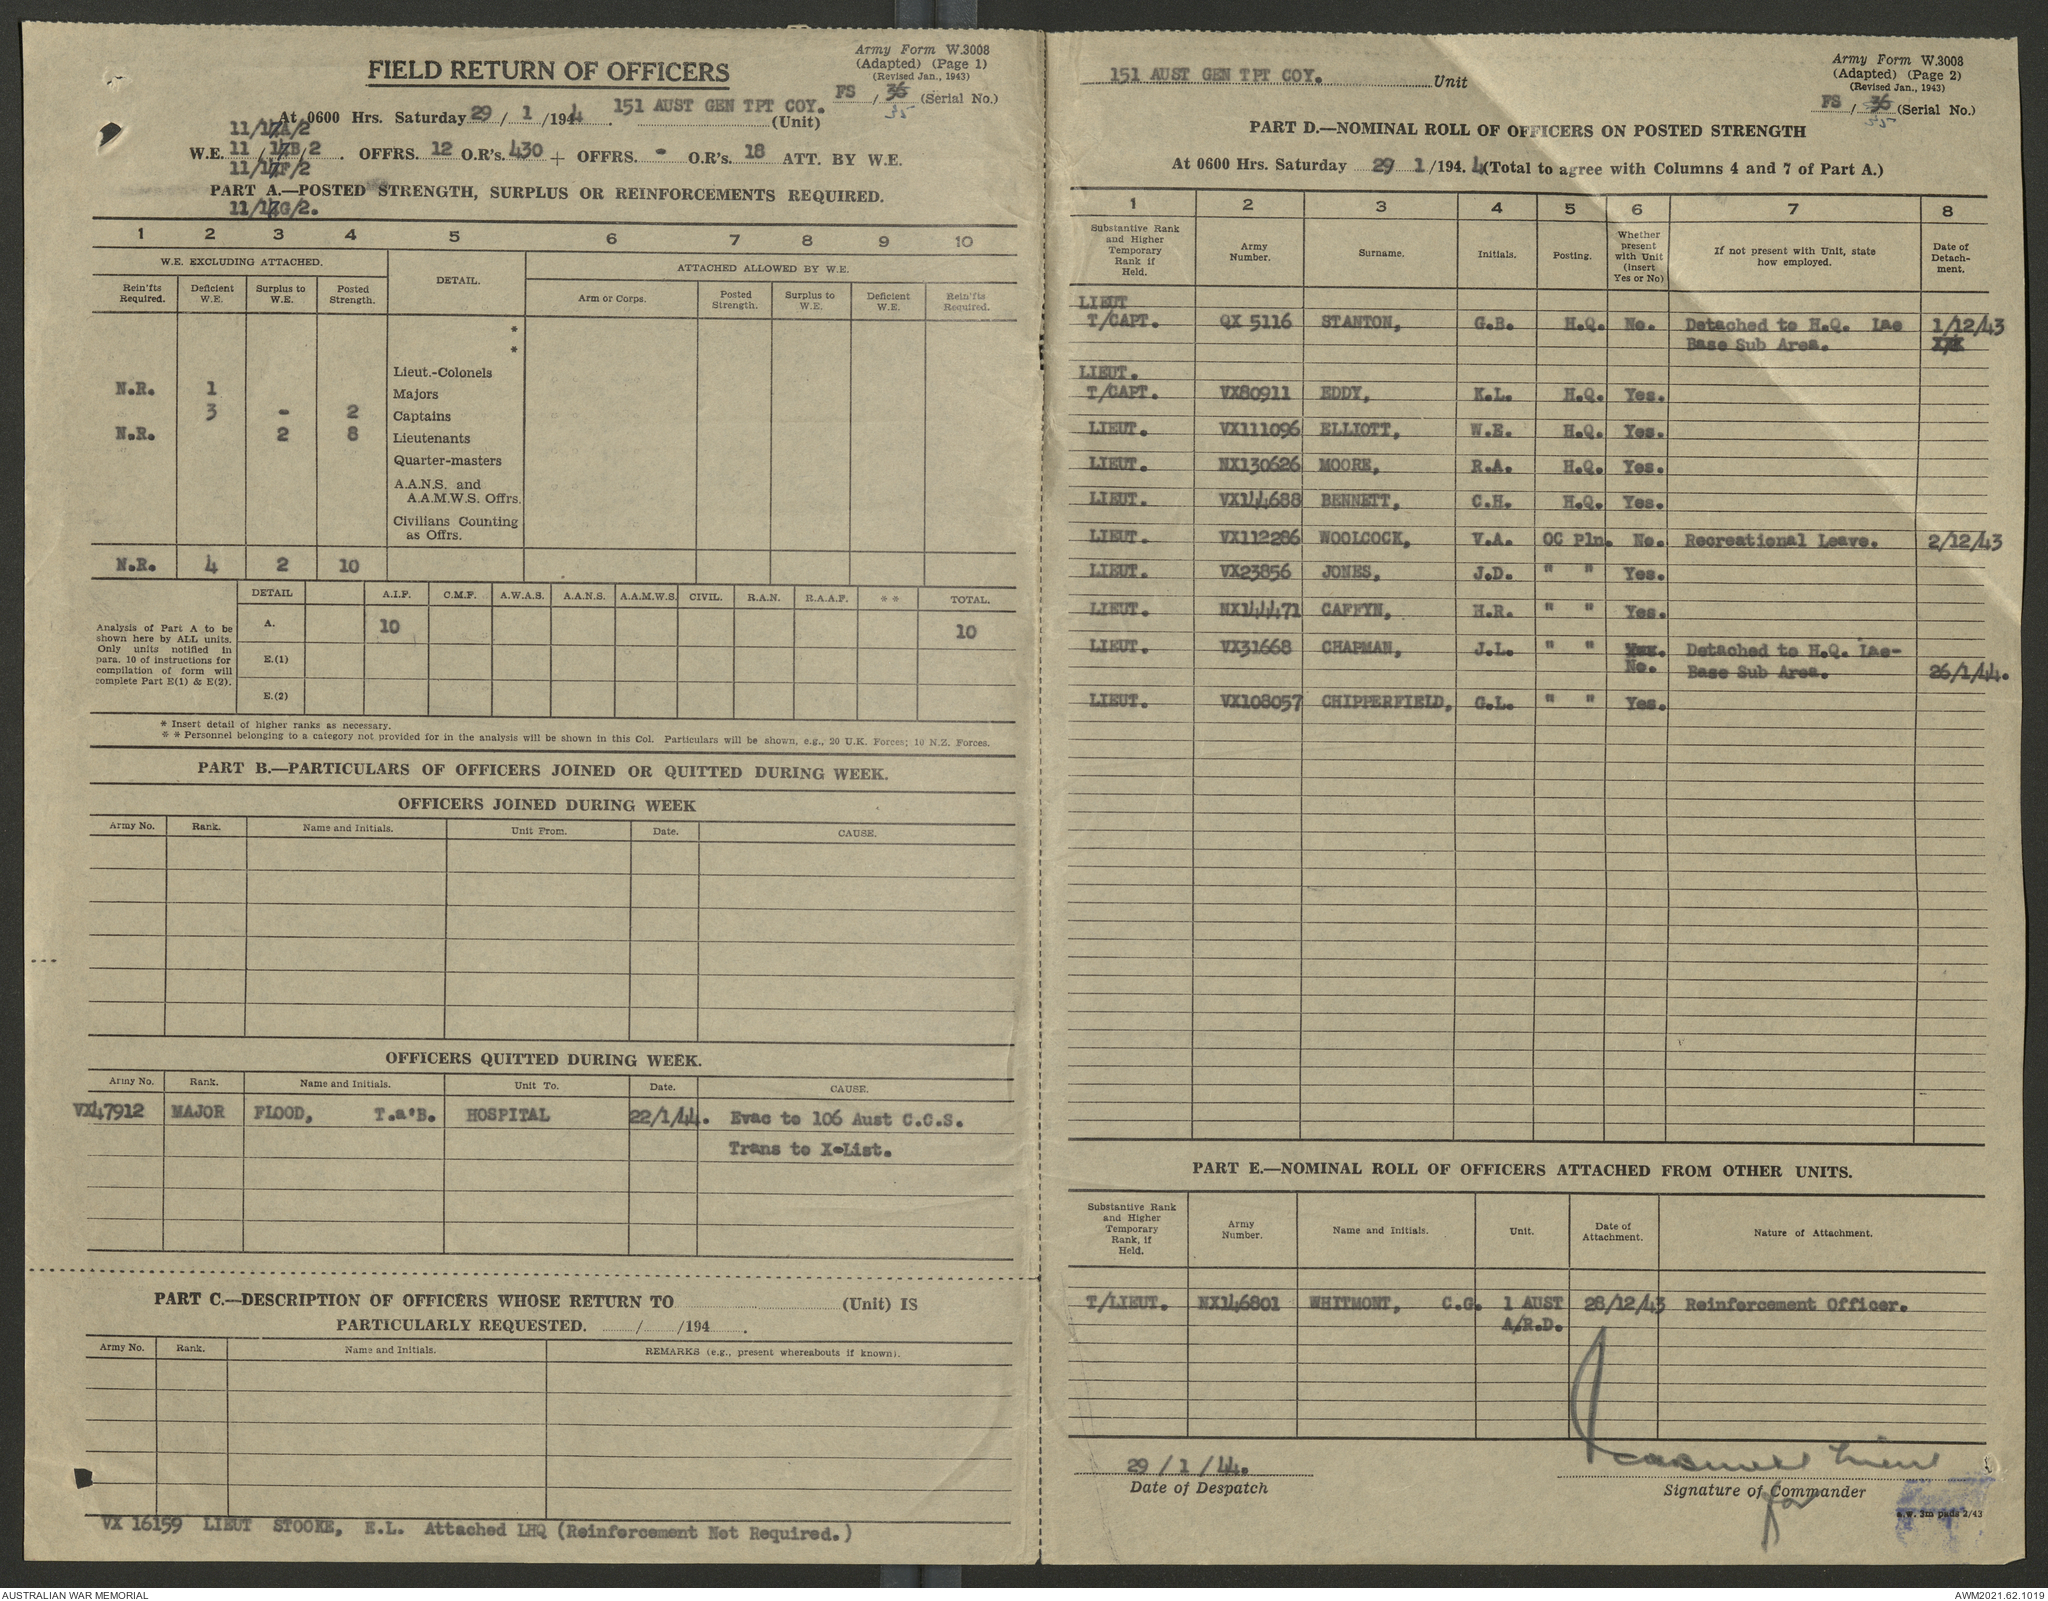 Army Form W.3008
(Adapted) (Page 1)
(Revised Jan., 1943)
FIELD RETURN OF OFFICERS
FS / 36 (Serial No.)
35
At 0600 Hrs. Saturday 29 / 1 /1944. 151 AUST GEN TPT COY. (Unit)
11/17A/2
W.E. 11 /17B/2. OFFRS. 12 O.R's. 430 + OFFRS. - O.R's. 18 ATT. BY W.E.
11/17F/2
PART A.—POSTED STRENGTH, SURPLUS OR REINFORCEMENTS REQUIRED.
11/17G/2.
1 2 3 4 5 6 7 8 9 10
W.E. EXCLUDING ATTACHED. DETAIL. ATTACHED ALLOWED BY W.E.
Rein'fts Required. Deficient W.E. Surplus to W.E. Posted Strength. Arm or Corps. Posted Strength. Surplus to W.E. Deficient W.E. Rein'fts Required.
*
*
Lieut.-Colonels
N.R. 1 Majors
3 - 2 Captains
N.R. 2 8 Lieutenants
Quarter-masters
A.A.N.S. and
A.A.M.W.S. Offrs.
Civilians Counting
as Offrs.
N.R. 4 2 10
DETAIL A.I.F. C.M.F. A.W.A.S. A.A.N.S. A.A.M.W.S. CIVIL. R.A.N. R.A.A.F. * * TOTAL.
Analysis of Part A to be
shown here by ALL units.
Only units notified in
para. 10 of instructions for
compilation of form will
complete Part E(1) & E(2).
A. 10 10
E.(1)
E.(2)
* Insert detail of higher ranks as necessary.
* * Personnel belonging to a category not provided for in the analysis will be shown in this Col. Particulars will be shown, e.g., 20 U.K. Forces; 10 N.Z. Forces.
PART B.—PARTICULARS OF OFFICERS JOINED OR QUITTED DURING WEEK.
OFFICERS JOINED DURING WEEK
Army No. Rank. Name and Initials. Unit From. Date. CAUSE.
OFFICERS QUITTED DURING WEEK.
Army No. Rank. Name and Initials. Unit To. Date. CAUSE.
VX47912 MAJOR FLOOD, T.a'B. HOSPITAL 22/1/44. Evac to 106 Aust C.C.S.
Trans to X-List.
PART C.—DESCRIPTION OF OFFICERS WHOSE RETURN TO (Unit) IS
PARTICULARLY REQUESTED. / /194 .
Army No. Rank. Name and Initials. REMARKS (e.g., present whereabouts if known).
VX 16159 LIEUT STOOKE, E.L. Attached LHQ (Reinforcement Not Required.)
151 AUST GEN TPT COY. Unit
Army Form W.3008
(Adapted) (Page 2)
(Revised Jan., 1943)
FS / 36 (Serial No.)
35
PART D.—NOMINAL ROLL OF OFFICERS ON POSTED STRENGTH
At 0600 Hrs. Saturday 29 1 /194.4 (Total to agree with Columns 4 and 7 of Part A.)
1 2 3 4 5 6 7 8
Substantive Rank and Higher Temporary Rank if Held. Army Number. Surname. Initials. Posting. Whether present with Unit (insert Yes or No) If not present with Unit, state how employed. Date of Detach-ment.
LIEUT
T/CAPT. QX 5116 STANTON, G.B. H.Q. No. Detached to H.Q. Lae 1/12/43
Base Sub Area. XXX
LIEUT.
T/CAPT. VX80911 EDDY, K.L. H.Q. Yes.
LIEUT. VX111096 ELLIOTT, W.E. H.Q. Yes.
LIEUT. NX130626 MOORE, R.A. H.Q. Yes.
LIEUT. VX144688 BENNETT, C.H. H.Q. Yes.
LIEUT. VX112286 WOOLCOCK, V.A. OC Pln. No. Recreational Leave. 2/12/43
LIEUT. VX23856 JONES, J.D. " " Yes.
LIEUT. NX144471 CAFFYN, H.R. " " Yes.
LIEUT. VX31668 CHAPMAN, J.L. " " Yes. Detached to H.Q. Lae-
No. Base Sub Area. 26/1/44.
LIEUT. VX108057 CHIPPERFIELD, G.L. " " Yes.
PART E.—NOMINAL ROLL OF OFFICERS ATTACHED FROM OTHER UNITS.
Substantive Rank and Higher Temporary Rank, if Held. Army Number. Name and Initials. Unit. Date of Attachment. Nature of Attachment.
T/LIEUT. NX146801 WHITMONT, C.G. 1 AUST 28/12/43 Reinforcement Officer.
A/R.D.
29 / 1 / 44.
Date of Despatch
Lieut
Signature of Commander
for
a.w. 3m pads 2/43
AUSTRALIAN WAR MEMORIAL
AWM2021.62.1019